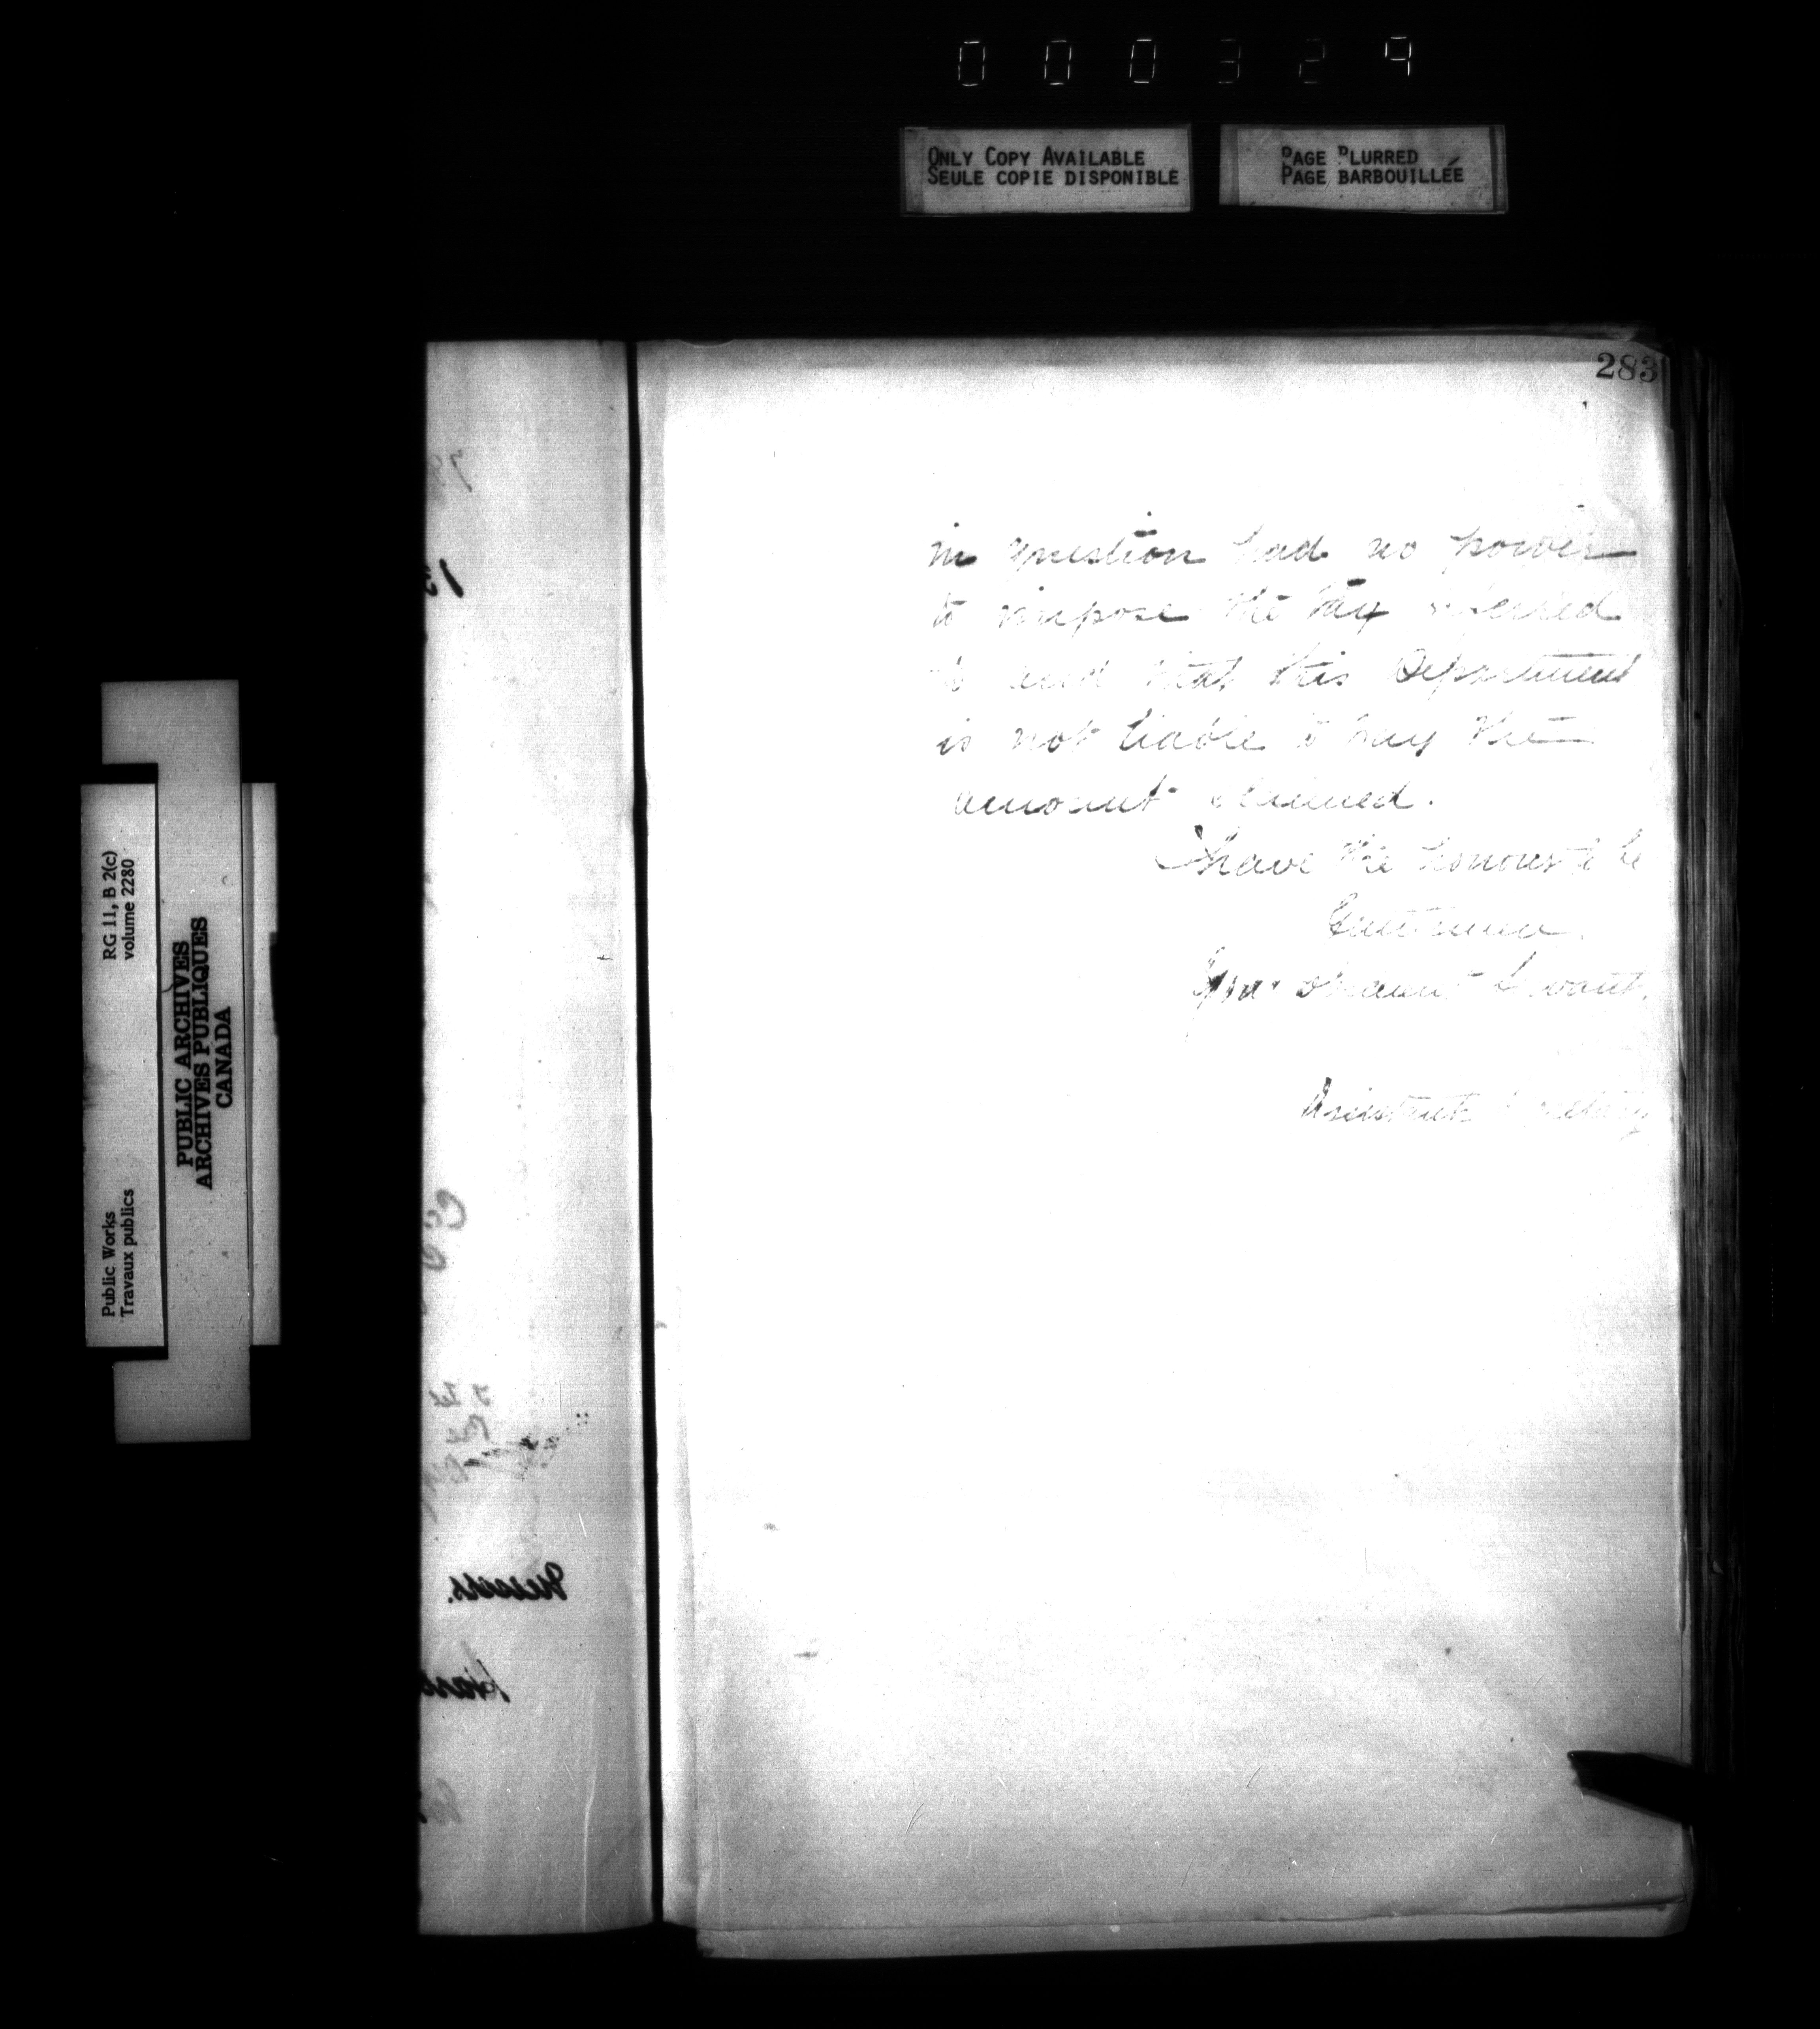 000329
ONLY COPY AVAILABLE
SEULE COPIE DISPONIBLE
PAGE BLURRED
PAGE BARBOUILLÉE
283
in question had no power
to impose the tax referred
to and that this Department
is not liable to pay the
amount claimed.
I have the honour to be
Gentlemen,
Your obedient Servant,
Assistant Secretary
RG 11, B 2(c)
volume 2280
Public Works
Travaux publics
PUBLIC ARCHIVES
ARCHIVES PUBLIQUES
CANADA
Messrs.